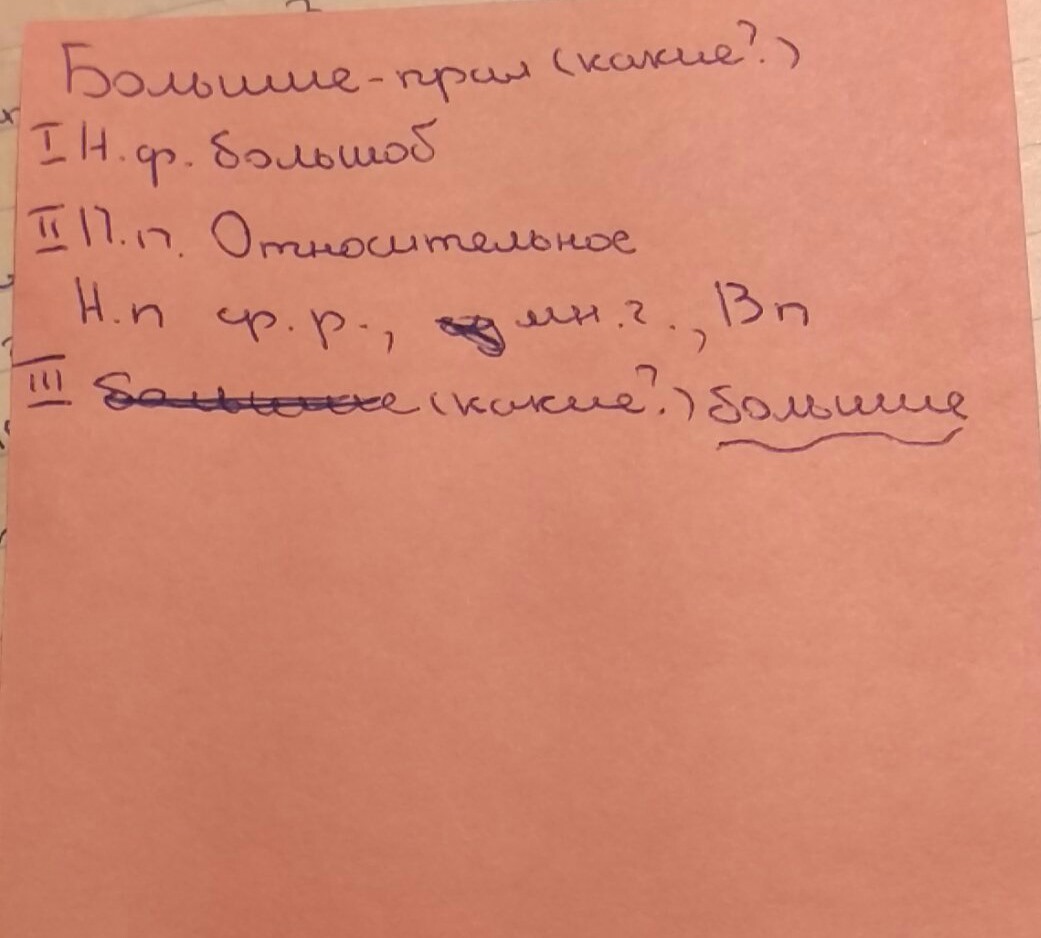 Большие-прил (какие?)
I Н.ф. большоб
II П.п. Относительное
Н.п ф.р., мн.ч., Вп
III большие (какие?) большие